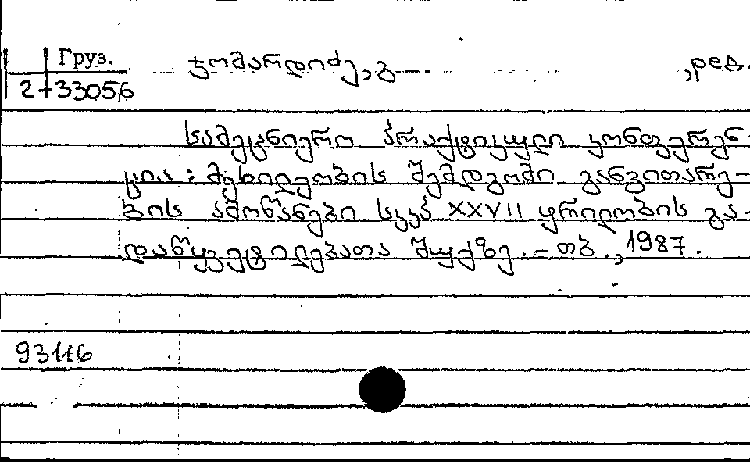 Груз.
2+33056
ჯომარდიძე, გ , ред.
სამეცნიერო პრაქტიკული კონფერენ-
ცია: მეხილეობის შემდგომი განვითარე-
ბის ამოცანები სკკპ XXVII ყრილობის გა-
დაწყვეტილებათა შუქზე. – თბ., 1987.
93116